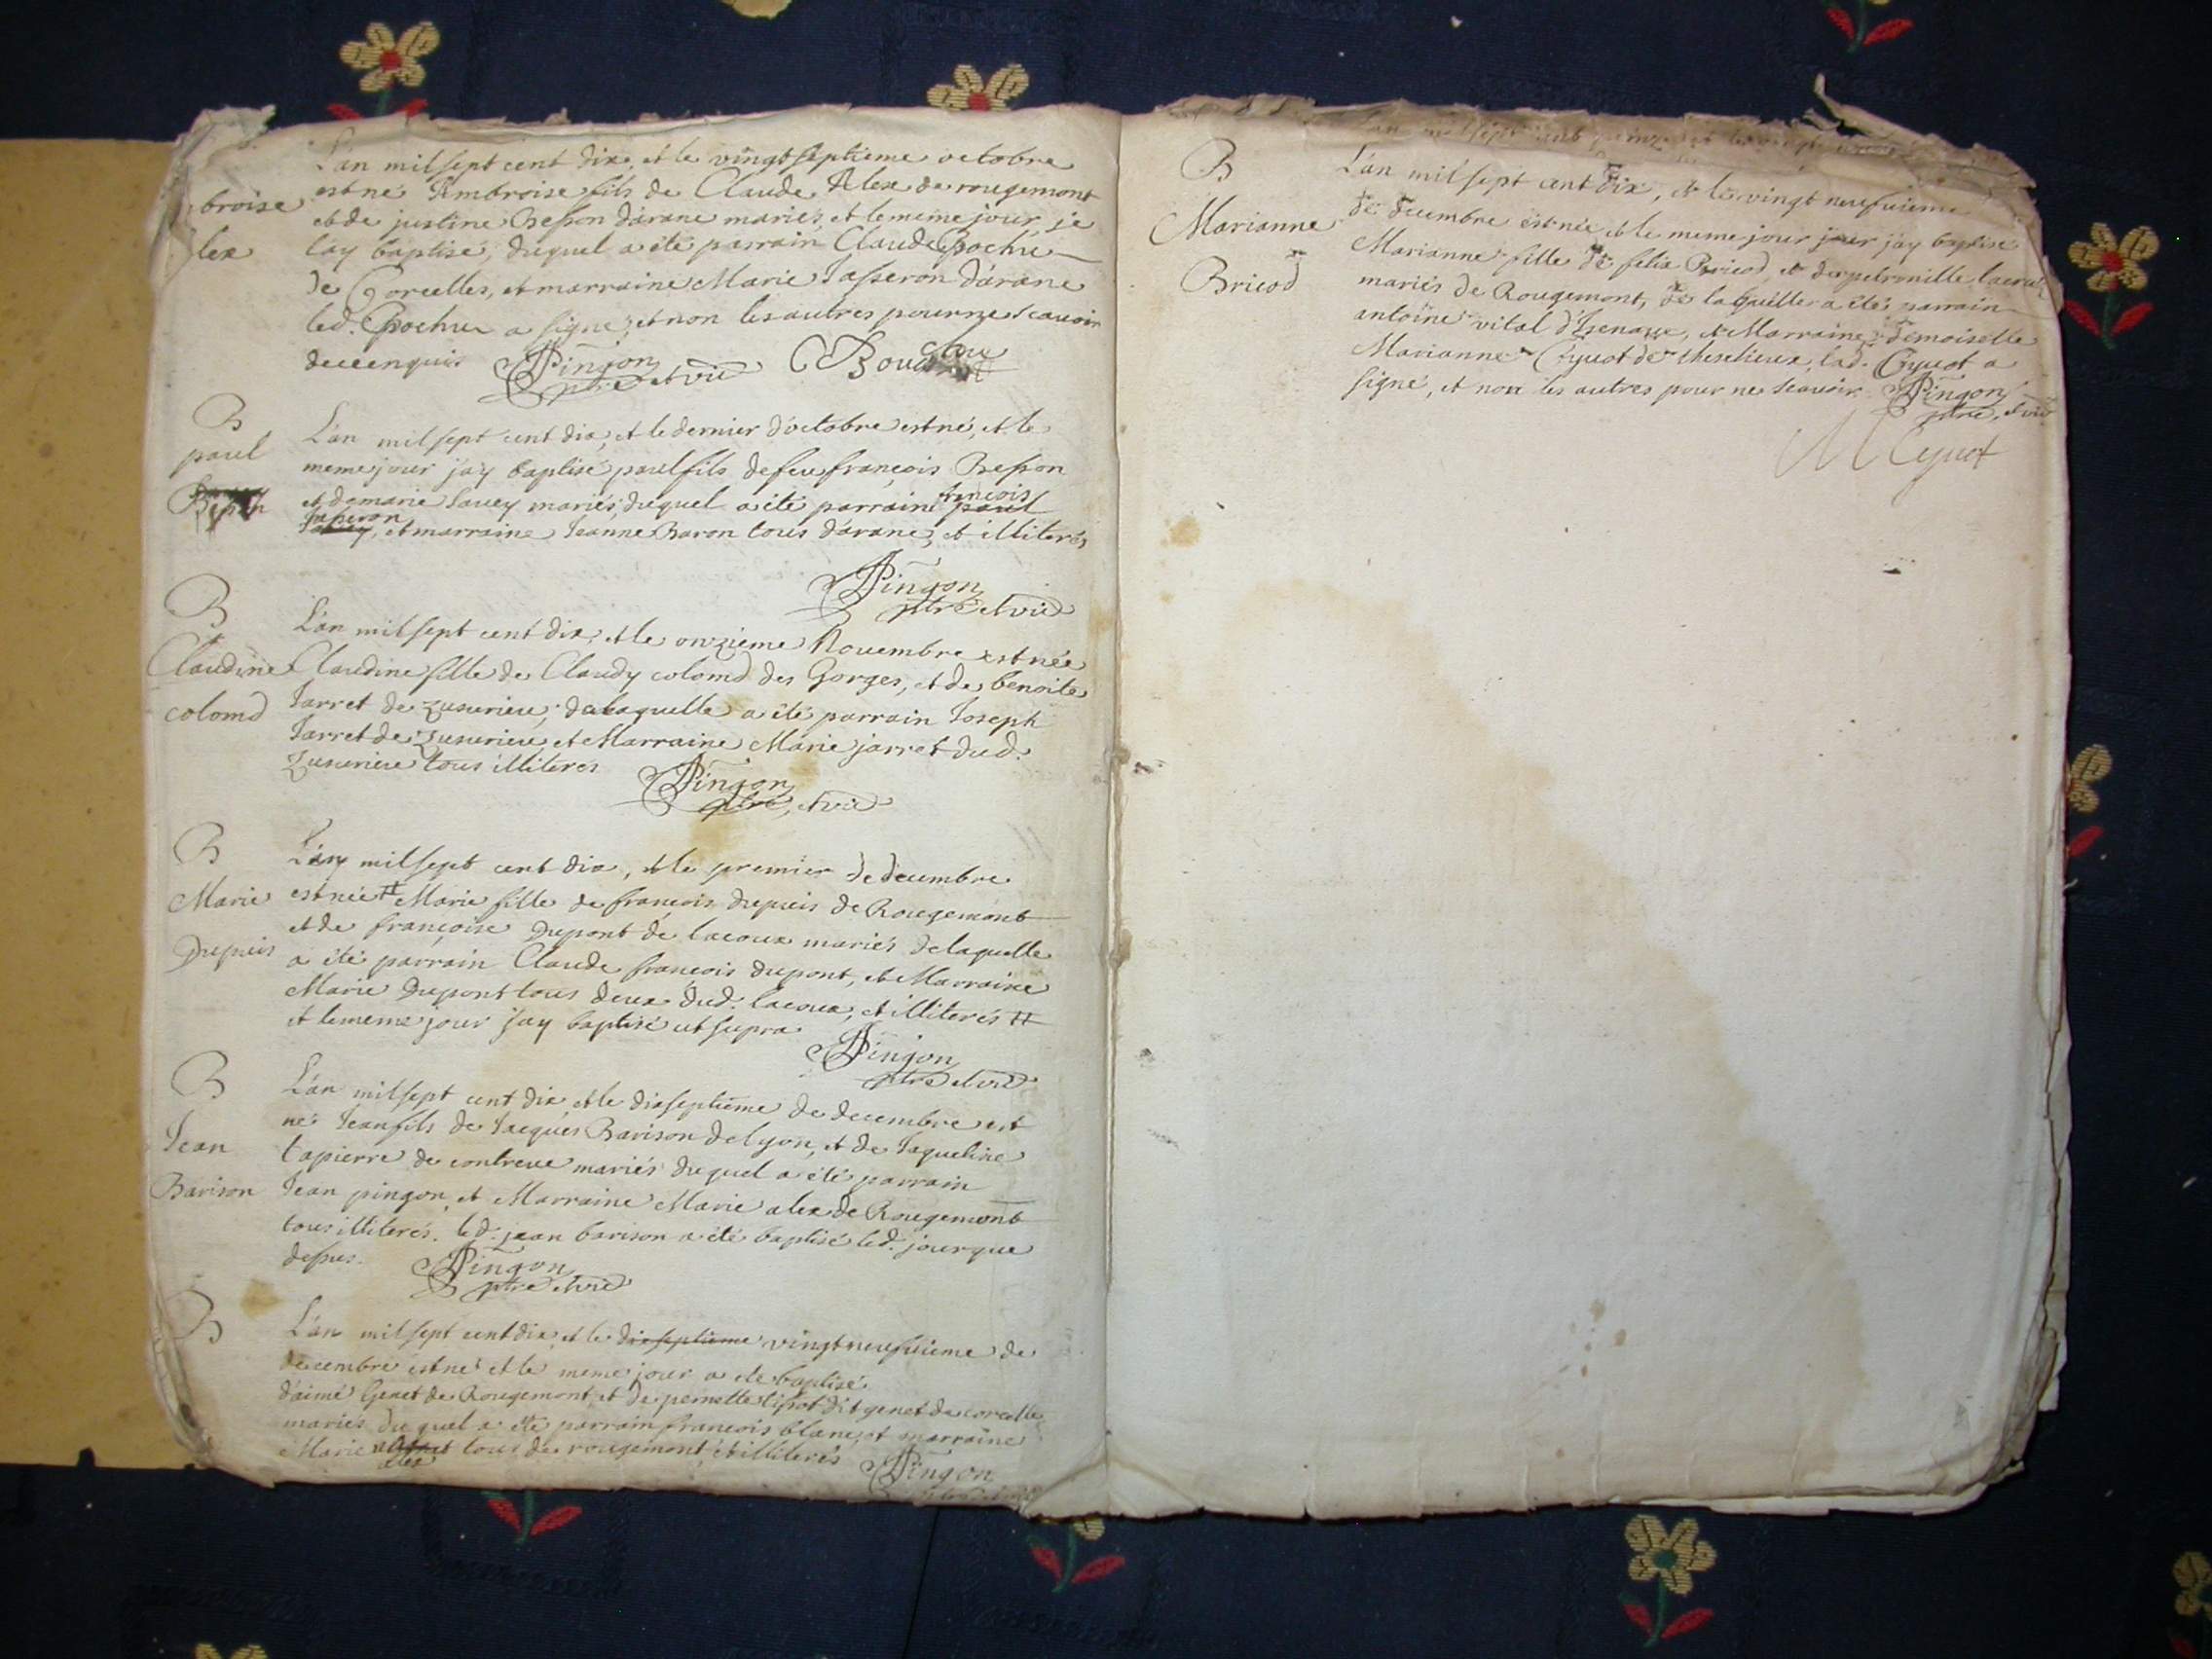 L'an mil sept cent dix, et le vingt septieme octobre
broise est né Ambroise fils de Claude Alex de rougemont
et de justine Besson d'arane mariés, et le meme jour je
lex lay baptisé, duquel a été parrain Claude Bochu
de Corcelles, et marraine Marie Jasseron d'arane
led. Bochu a signé, et non les autres pour ne scavoir
de ce enquis Pingon
ptre et vic
B
L'an mil sept cent dix, et le dernier d'octobre est né, et le
paul meme jour jay baptisé paul fils de feu françois Besson
Besson et de marie Savey mariés, duquel a été parrain françois paul
Jasseron, et marraine Jeanne Baron tous d'arane, et illiterés
Pingon
ptre et vic
B
L'an mil sept cent dix, et le onzieme Novembre est née
Claudine Claudine fille de Claudy colomd des Gorges, et de benoite
colomd Jarret de Zusurieu, de laquelle a été parrain Joseph
Jarret de Zusurieu et Marraine Marie jarret dud.
Zusurieu tous illiteres
Pingon
ptre, et vic
B
L'an mil sept cent dix, et le premier de decembre
Marie est née # Marie fille de francois dupuis de Rougemont
et de françoise Dupont de lacoux mariés de laquelle
Dupuis a été parrain Claude françois dupont, et Marraine
Marie Dupont tous deux dud. lacoux, et illiterés #
et le meme jour jay baptisé ut supra
Pingon
ptre et vic
B
L'an mil sept cent dix, et le dix septieme de decembre est
né Jean fils de Jacques Barison de lyon, et de Jaqueline
Jean tapierre de contreve mariés duquel a été parrain
Barison Jean pingon, et Marraine Marie alex de Rougemont
tous illiterés. led. jean barison a été baptisé led. jour que
dessus. Pingon
ptre et vic
B
L'an mil sept cent dix, et le dix septieme vingt neufvieme de
decembre est né et le meme jour a été baptisé
d'aimé Genet de Rougemont, et de pernette tissot dit genet de corcelles
mariés, du quel a été parrain francois blanc, et marraine
Marie alex tous de rougemont, et illiterés
Pingon
L'an mil sept cent
B
L'an mil sept cent dix, et le vingt neufvieme
Marianne de decembre est née et le meme jour jay baptisé
Marianne fille de felix Bricod, et de petronille
Bricod mariés de Rougemont, de laquelle a été parrain
antoine vital d'Isenave, et Marraine demoiselle
Marianne Cyuot de lad. Cyuot a
signé, et non les autres pour ne scavoir Pingon
ptre, et vic
M Cyuot